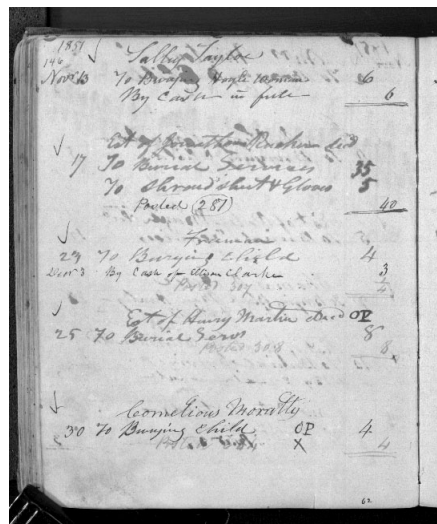 1851
146 Sally Taylor
Novr 13 To 6
By Cash in full 6
Est of Jonathan decd
17 To Burial Services 35
To Shroud sheet & Gloves 5
Posted (287) 40
Freeman
24 To Burying Child 4
Decr 3 By Cash of Clarke 3
Posted 307 4
Est of Henry Martin decd OP
25 To Burial Servs 8
Posted 308 8
Cornelious Moratty
30 To Burying Child OP 4
X 4
62